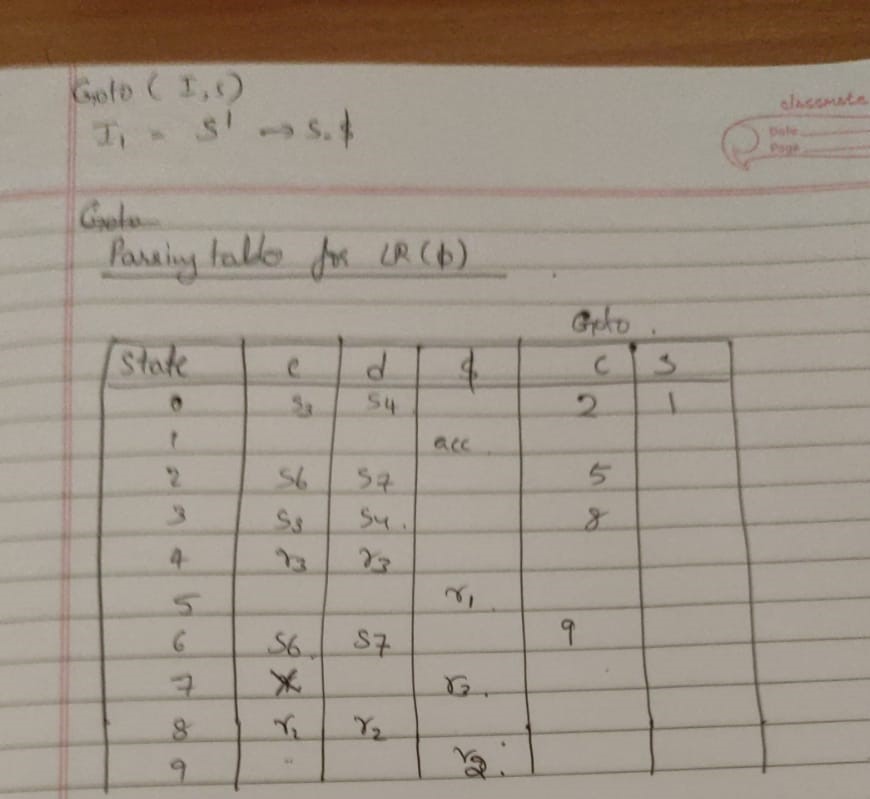 Goto ( I, c)
I1 = S' → S. $
classmate
Date
Page
Goto
Parsing table for LR(1)
Goto.
State c d $ C S
0 S3 S4 2 1
1 acc
2 S6 S7 5
3 S3 S4. 8
4 r3 r3
5 r1
6 S6 S7 9
7 r3.
8 r2 r2
9 r2.